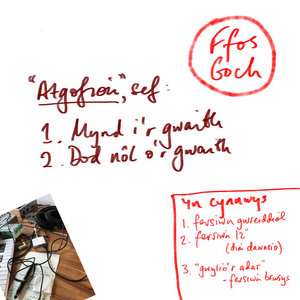 Ffos
Goch
"Atgofion", sef:
1. Mynd i'r gwaith
2. Dod nôl o'r gwaith
Yn cynnwys
1. fersiwn gwreiddiol
2. fersiwn 12"
(di'n dawnsio)
3. "gwylio'r adar"
- fersiwn brwsys